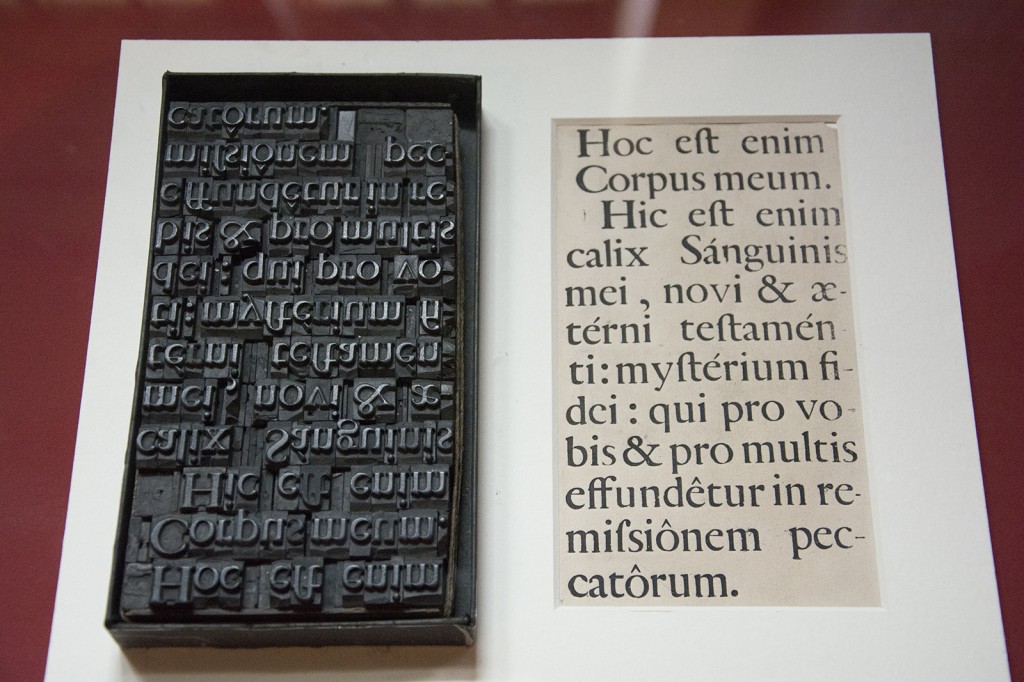 Hoc eſt enim
Corpus meum.
Hic eſt enim
calix Sánguinis
mei , novi & æ-
térni teſtamén-
ti: myſtérium fi-
dei : qui pro vo-
bis & pro multis
effundêtur in re-
miſsiônem pec-
catôrum.